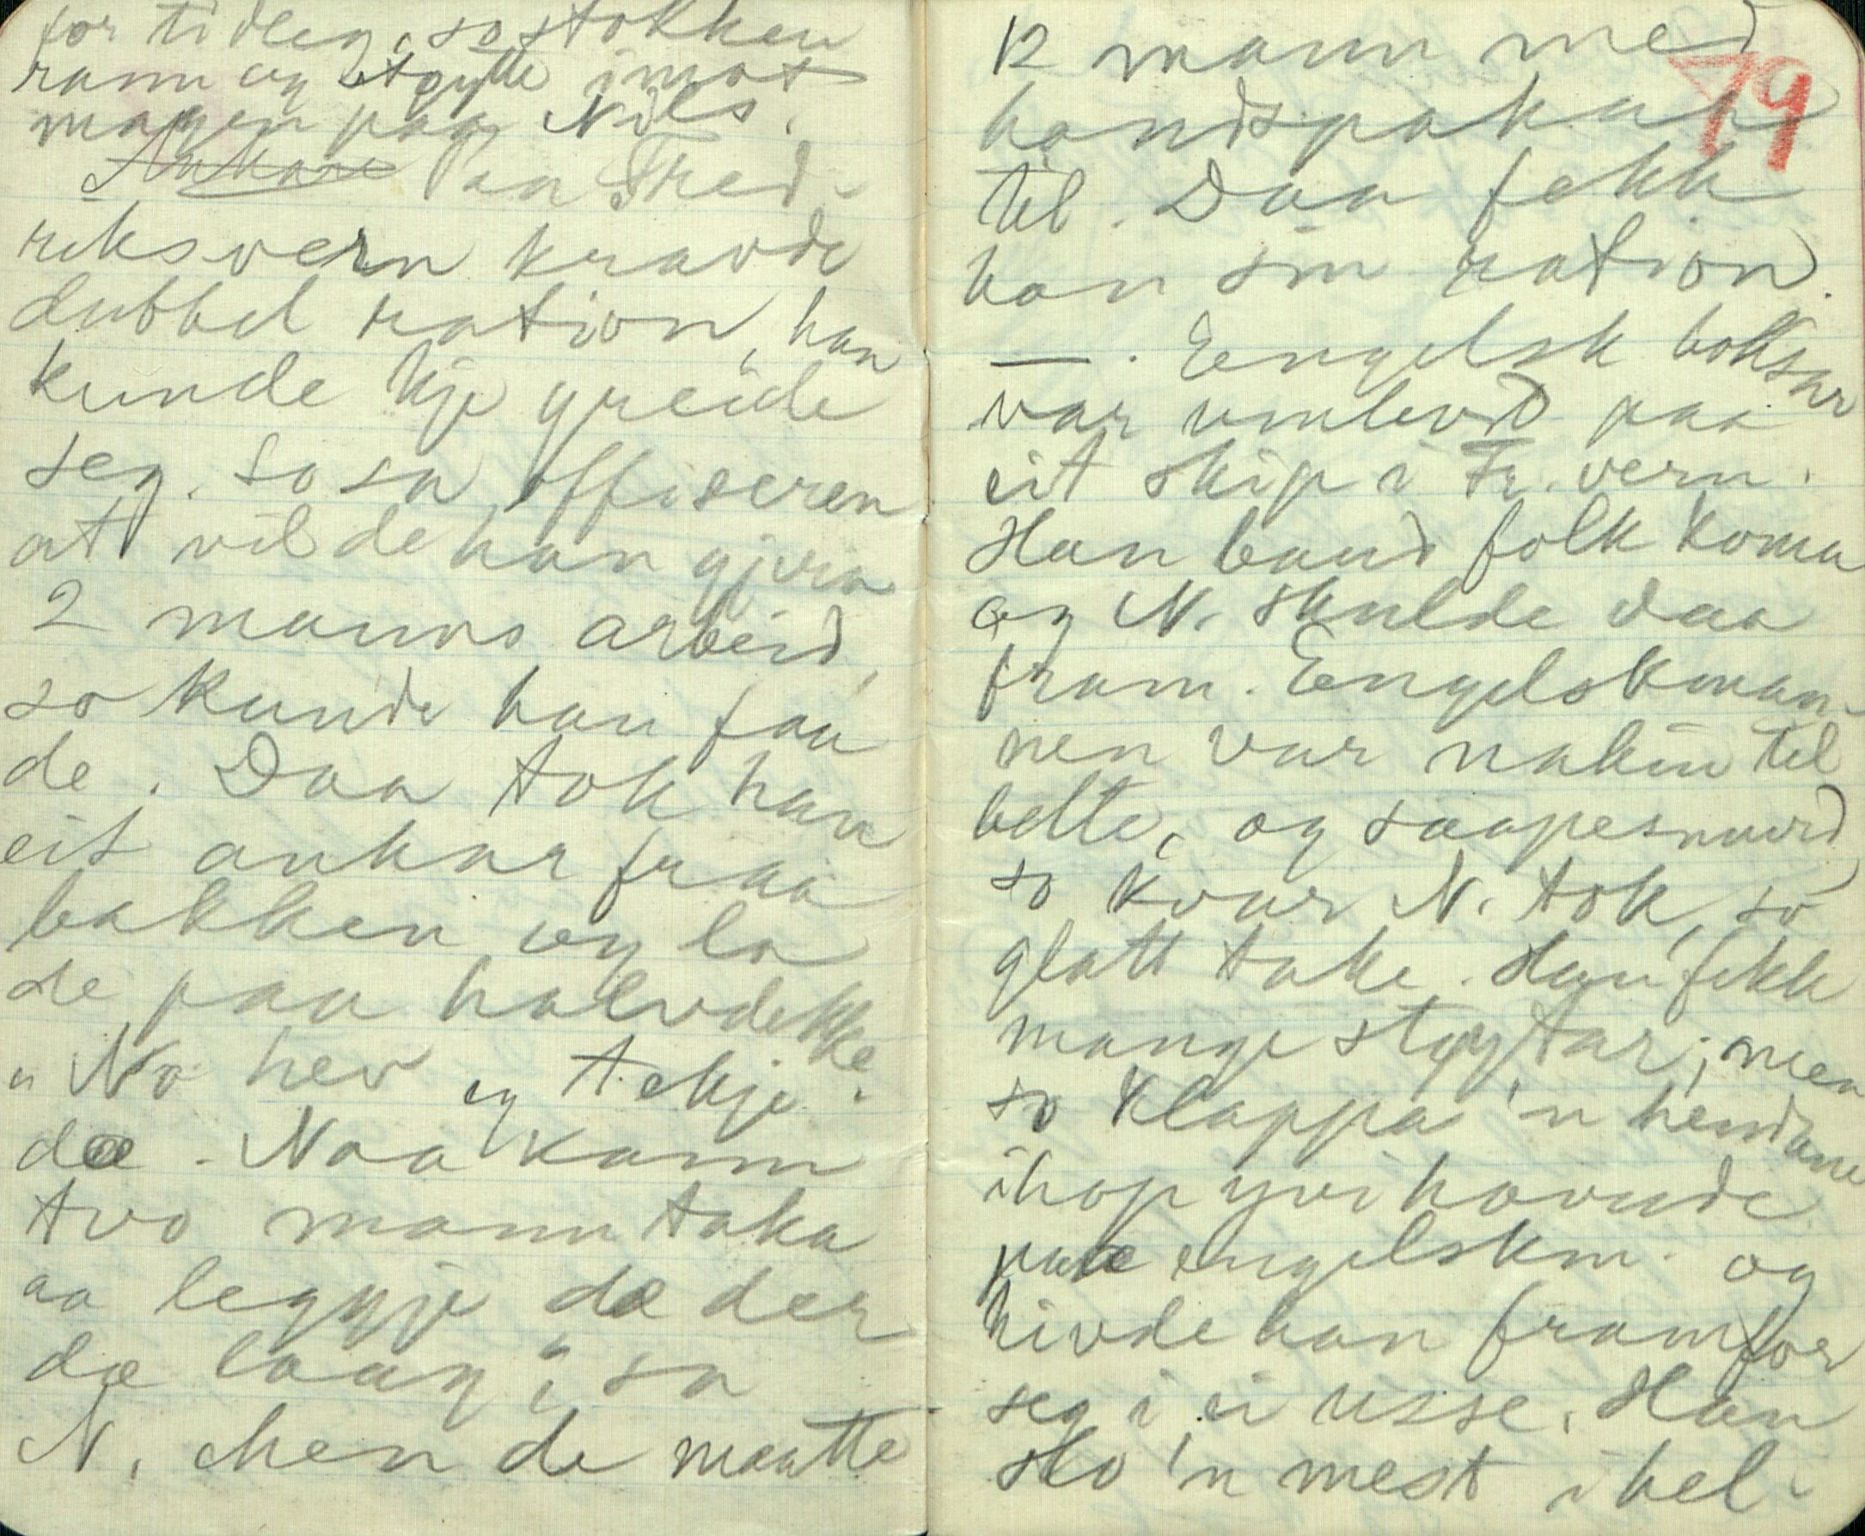 for tidleg, so stokken
rann og støytte imot
magen paa Nils.
Ankare Paa Fred-
riksvern kravde
dubbel ration, han
kunde kje greide
seg. So sa offiseren
at vilde han gjera
2 manns arbeid,
so kunde han faa
de. Daa tok han
eit ankar fraa
bakken og la
de paa halvdekke.
"No hev eg tekje
dæ. Naa kann
tvo mann taka
aa leggje dæ der
dæ laag", sa
N. Men de maatte
79
12 mann med
handspakar
til. Daa fekk
han sin ration.
— . Engelsk boksar
var umlevd paa
eit skip i Fr.vern.
Han baud folk koma
og N. skulde daa
fram. Engelskman-
nen var nakin til
belte, og saapesmurd,
so kvar N. tok, so
glatt take. Han fekk
mange støytar; men
so klappa 'n hendane
ihop yvi hovude
paa engelskm. og
hivde han framfor
seg i ei usse. Han
slo 'n mest i hel.